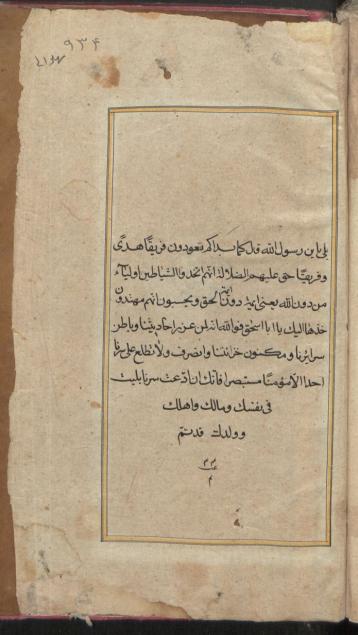 ۹۳۴
بلی یابن رسول الله قال کما بداکم تعودون فریقا هدی
و فریقا حق علیهم الضلالة انهم اتخذوا الشیاطین اولیاء
من دون الله یعنی ائمة دون ائمة الحق و یحسبون انهم مهتدون
خذها الیک یا ابا اسحق فوالله انه لمن غرر احادیثنا و باطن
سرایرنا و مکنون خزائننا وانصرف ولا تطلع علی سرنا
احدا الا مؤمنا مستبصرا فانک ان اذعت سرنا بلیت
فی نفسک و مالک و اهلک
و ولدک قد تم
م